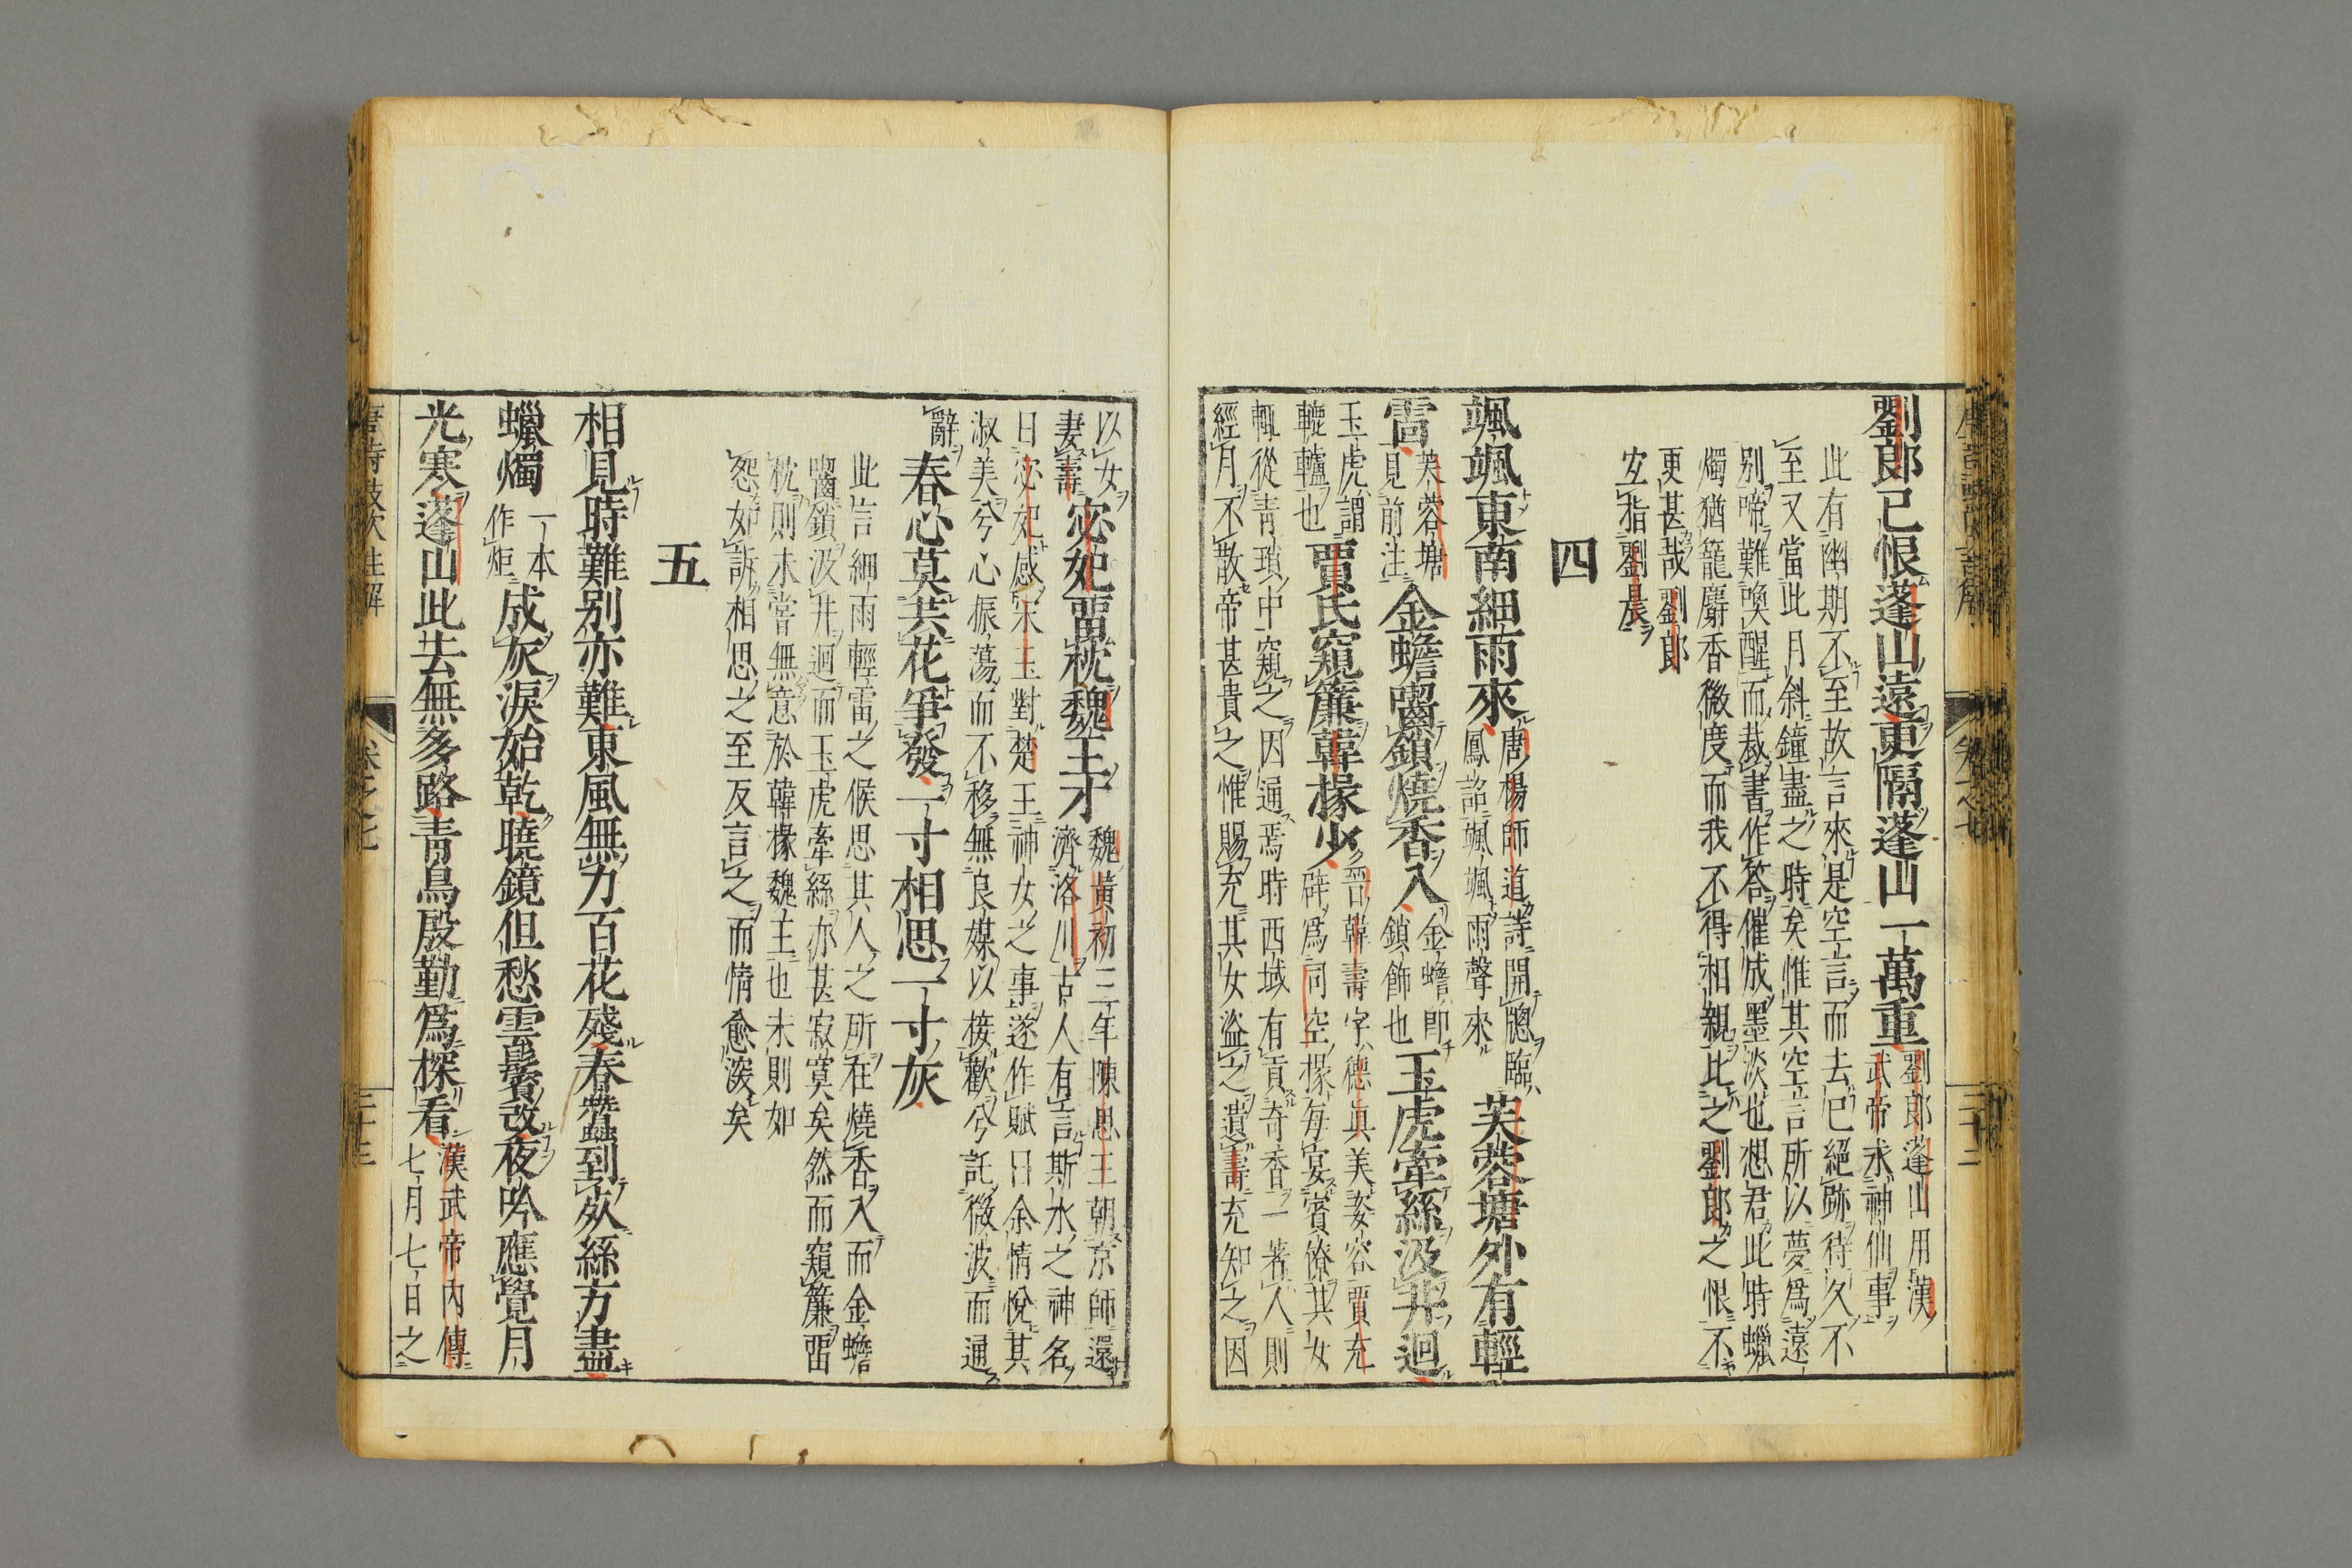 劉郎已恨蓬山遠更隔蓬山一萬重
劉郎蓬山用漢
武帝求神仙事
此有幽期不至故言來是空言而去已絕跡待久不
至又當此月斜鐘盡之時矣惟其空言所以夢為遠
別啼難喚醒而裁書作答催成墨淡也想君此時蠟
燭猶籠麝香微度而我不得相親比之劉郎之恨不
更甚哉劉郎
安指劉晨
四
颯颯東南細雨來
唐楊師道詩開牕臨
鳳詔颯颯雨聲來
芙蓉塘外有輕
雷
芙蓉塘
見前注
金蟾齧鎖燒香入
金蟾即
鎖飾也
玉虎牽絲汲井迴
玉虎謂
轆轤也
賈氏窺簾韓掾少
晉韓壽字德真美姿容賈充
辟為司空掾每宴賓僚其女
輒從青瑣中窺之因通焉時西域有貢奇香一著人則
經月不散帝甚貴之惟賜充其女盜之遺壽充知之因
以女
妻壽
宓妃畱枕魏王才
魏黃初三年陳思王朝京師還
濟洛川古人有言斯水之神名
曰宓妃感宋玉對楚王神女之事遂作賦曰余情悅其
淑美兮心振蕩而不移無良媒以接歡兮託微波而通
辭
春心莫共花爭發一寸相思一寸灰
此言細雨輕雷之候思其人之所在燒香入而金蟾
齧鎖汲井迴而玉虎牽絲亦甚寂寞矣然而窺簾畱
枕則未嘗無意於韓掾魏王也未則如
怨如訴相思之至反言之而情愈深矣
五
相見時難別亦難東風無力百花殘春蠶到死絲方盡
蠟燭
一本
作炬
成灰淚始乾曉鏡但愁雲鬢改夜吟應覺月
光寒蓬山此去無多路青鳥殷勤為探看
漢武帝內傳
七月七日之
卷之七
三十三